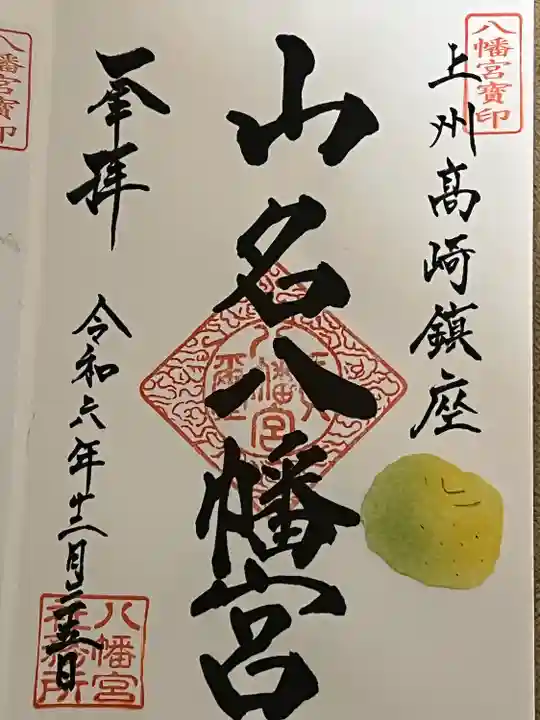 八幡宮寶印
上州高崎鎮座
山名八幡宮
奉拝
令和六年十二月二十五日
八幡宮
社務所
八幡宮寶印